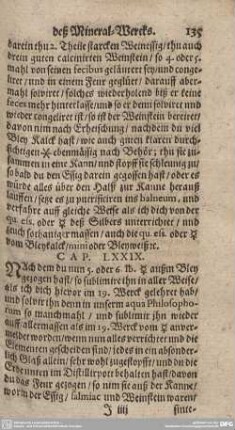 deß Mineral-Wercks. 135
darein thu 2. Theile starcken Weinessig/ thu auch
drein guten calcinirten Weinstein/ so 4. oder 5.
mahl von seinen fecibus geläutert sey/ und conge-
liret/ und in einem Feur geglüet/ darauff aber-
mahl solviret/ solches wiederholend biß er keine
feces mehr hinterlasse/ und so er denn solviret und
wieder congeliret ist/ so ist der Weinstein bereitet/
davon nim nach Erheischung/ nachdem du viel
Bley Kalck hast/ wie auch guten klaren durch-
sichtigen ebenmässig nach Behör; thue sie zu-
sammen in eine Kann/ und stopff sie schleunig zu/
so bald du den Essig darein gegossen hast/ oder es
würde alles über den Halß zur Kanne herauß
lauffen/ setze es zu putrificiren ins balneum, und
verfahre auff gleiche Weise als ich dich von der
qu. ess. oder ☿ deß Silbers unterrichtet/ und
vom Bleykalck/ mini oder Bleyweiß ꝛc.
CAP. LXXIX.
NAch dem du nun 5. oder 6. lb. ☿ außm Bley
gezogen hast/ so sublimire ihn in aller Weise/
als ich dich hievor im 19. Werck gelehret hab/
und solvir ihn denn in unserm aqua Philosopho-
rum so manchmahl/ und sublimir ihn wieder
auff allermassen als im 19. Werck vom ☿
werden/ wenn nun alles verrichtet und die
Elementen gescheiden sind/ jedes in ein absonder-
lich Glaß allein/ sehr wohl zugestopfft/ und du die
Erde innen im Distillirpott behalten hast/ davon
du das Feur gezogen/ so nim sie auß der Kanne/
wor in der Essig/ salmiac und Weinstein waren/
J iiij